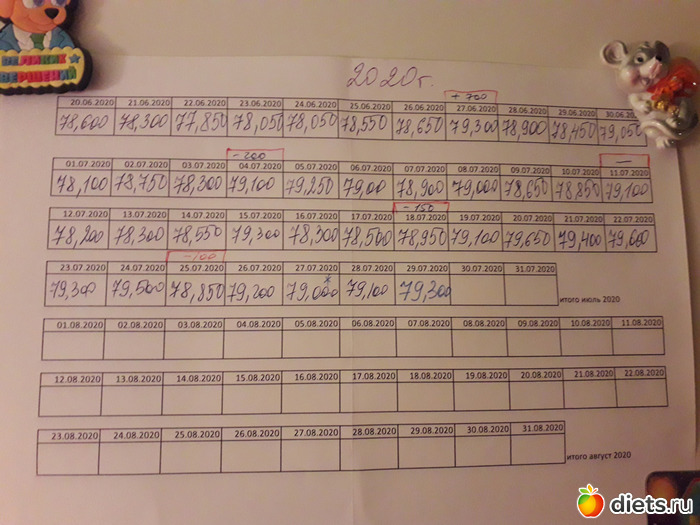 ВЕЛИКИХ
СВЕРШЕНИЙ
2020 г.
+ 700
20.06.2020 21.06.2020 22.06.2020 23.06.2020 24.06.2020 25.06.2020 26.06.2020 27.06.2020 28.06.2020 29.06.2020 30.06.2020
78,600 78,300 77,850 78,050 78,050 78,550 78,650 79,300 78,900 78,450 79,050
-200 —
01.07.2020 02.07.2020 03.07.2020 04.07.2020 05.07.2020 06.07.2020 07.07.2020 08.07.2020 09.07.2020 10.07.2020 11.07.2020
78,100 78,750 78,300 79,100 79,250 79,00 78,900 79,000 78,650 78,850 79,100
-150
12.07.2020 13.07.2020 14.07.2020 15.07.2020 16.07.2020 17.07.2020 18.07.2020 19.07.2020 20.07.2020 21.07.2020 22.07.2020
78,200 78,300 78,550 79,300 78,300 78,500 78,950 79,100 79,650 79,400 79,600
-100
23.07.2020 24.07.2020 25.07.2020 26.07.2020 27.07.2020 28.07.2020 29.07.2020 30.07.2020 31.07.2020
79,300 79,500 78,850 79,200 79,000 79,100 79,300
итого июль 2020
01.08.2020 02.08.2020 03.08.2020 04.08.2020 05.08.2020 06.08.2020 07.08.2020 08.08.2020 09.08.2020 10.08.2020 11.08.2020
12.08.2020 13.08.2020 14.08.2020 15.08.2020 16.08.2020 17.08.2020 18.08.2020 19.08.2020 20.08.2020 21.08.2020 22.08.2020
23.08.2020 24.08.2020 25.08.2020 26.08.2020 27.08.2020 28.08.2020 29.08.2020 30.08.2020 31.08.2020
итого август 2020
diets.ru